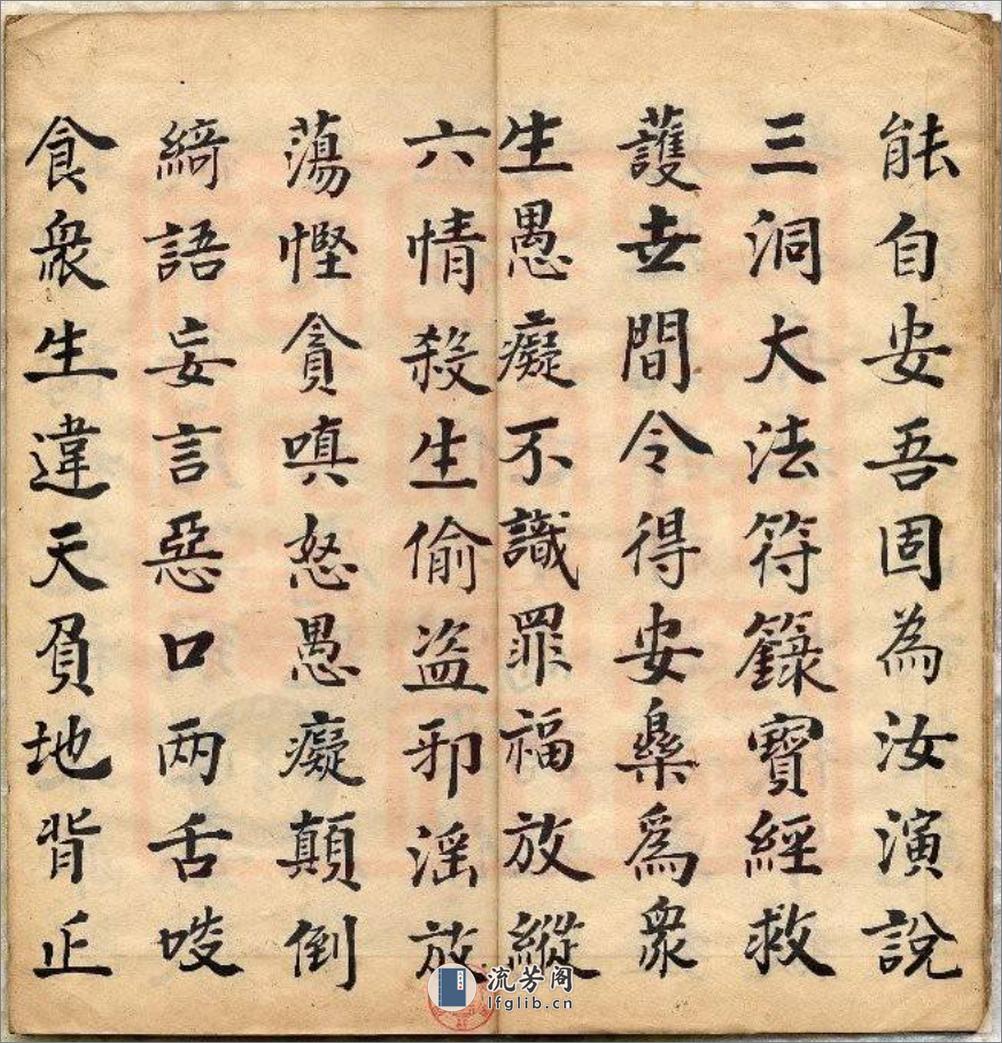 能自安吾因為汝演說
三洞大法符籙寶經救
護世間令得安樂爲衆
生愚癡不識罪福放縱
六情殺生偷盗邪滛放
蕩慳貪嗔怒愚癡顛倒
綺語妄言惡口兩舌唼
食衆生違天負地背正
流芳阁
lfglib.cn